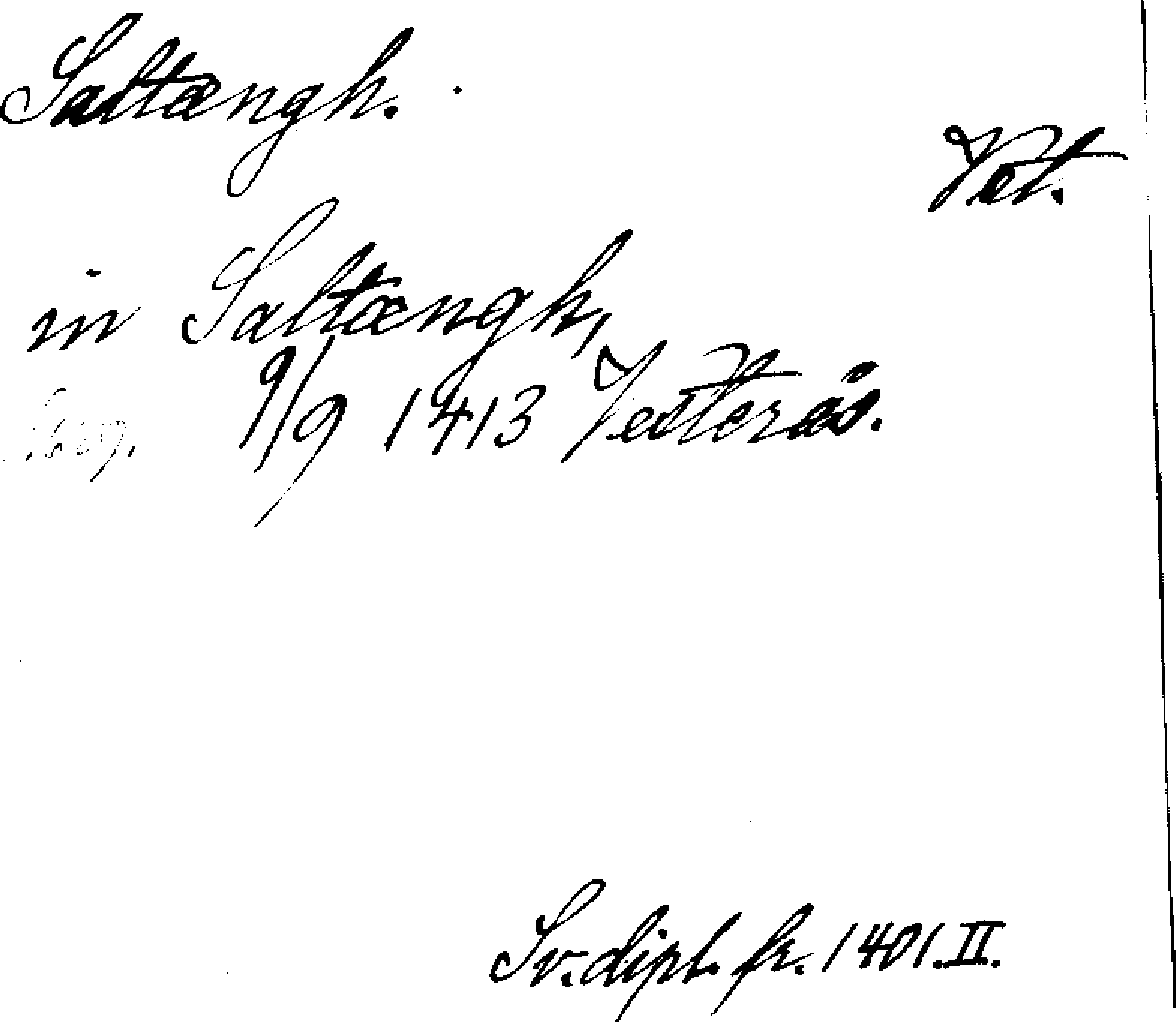 Saltængh.
Vet.
in Saltængh,
9/9 1413 Vesterås.
Sv. dipl. fr. 1401. II.